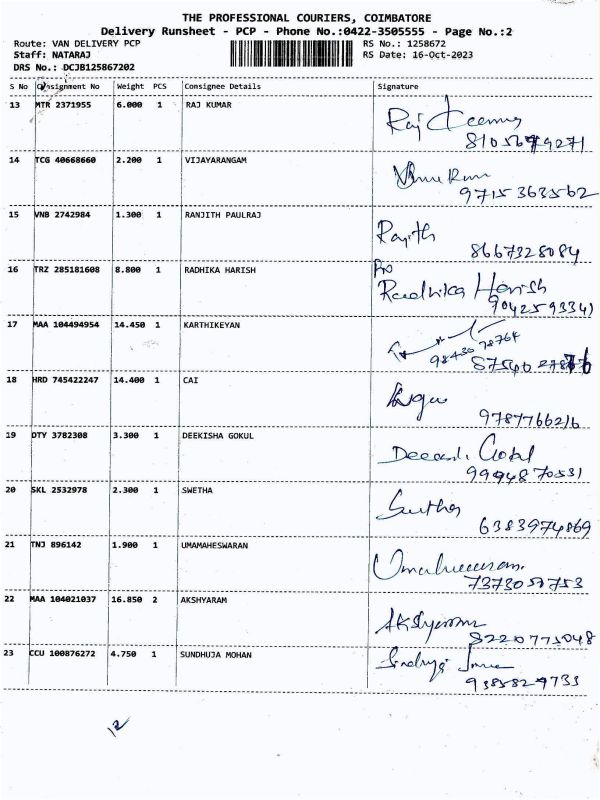 THE PROFESSIONAL COURIERS, COIMBATORE
Delivery Runsheet - PCP - Phone No.:0422-3505555 - Page No.:2
Route: VAN DELIVERY PCP RS No.: 1258672
Staff: NATARAJ RS Date: 16-Oct-2023
DRS No.: DCJB125867202
S No Consignment No Weight PCS Consignee Details Signature
13 MTR 2371955 6.000 1 RAJ KUMAR Raj
14 TCG 40668660 2.200 1 VIJAYARANGAM
9715363562
15 VNB 2742984 1.300 1 RANJITH PAULRAJ
8667328084
16 TRZ 285181608 8.800 1 RADHIKA HARISH Radhika Harish
9042593341
17 MAA 104494954 14.450 1 KARTHIKEYAN
18 HRD 745422247 14.400 1 CAI
9787766216
19 DTY 3782308 3.300 1 DEEKISHA GOKUL
9994870531
20 SKL 2532978 2.300 1 SWETHA
6383974869
21 TNJ 896142 1.900 1 UMAMAHESWARAN
22 MAA 104021037 16.850 2 AKSHYARAM
8220775048
23 CCU 100876272 4.750 1 SUNDHUJA MOHAN
12